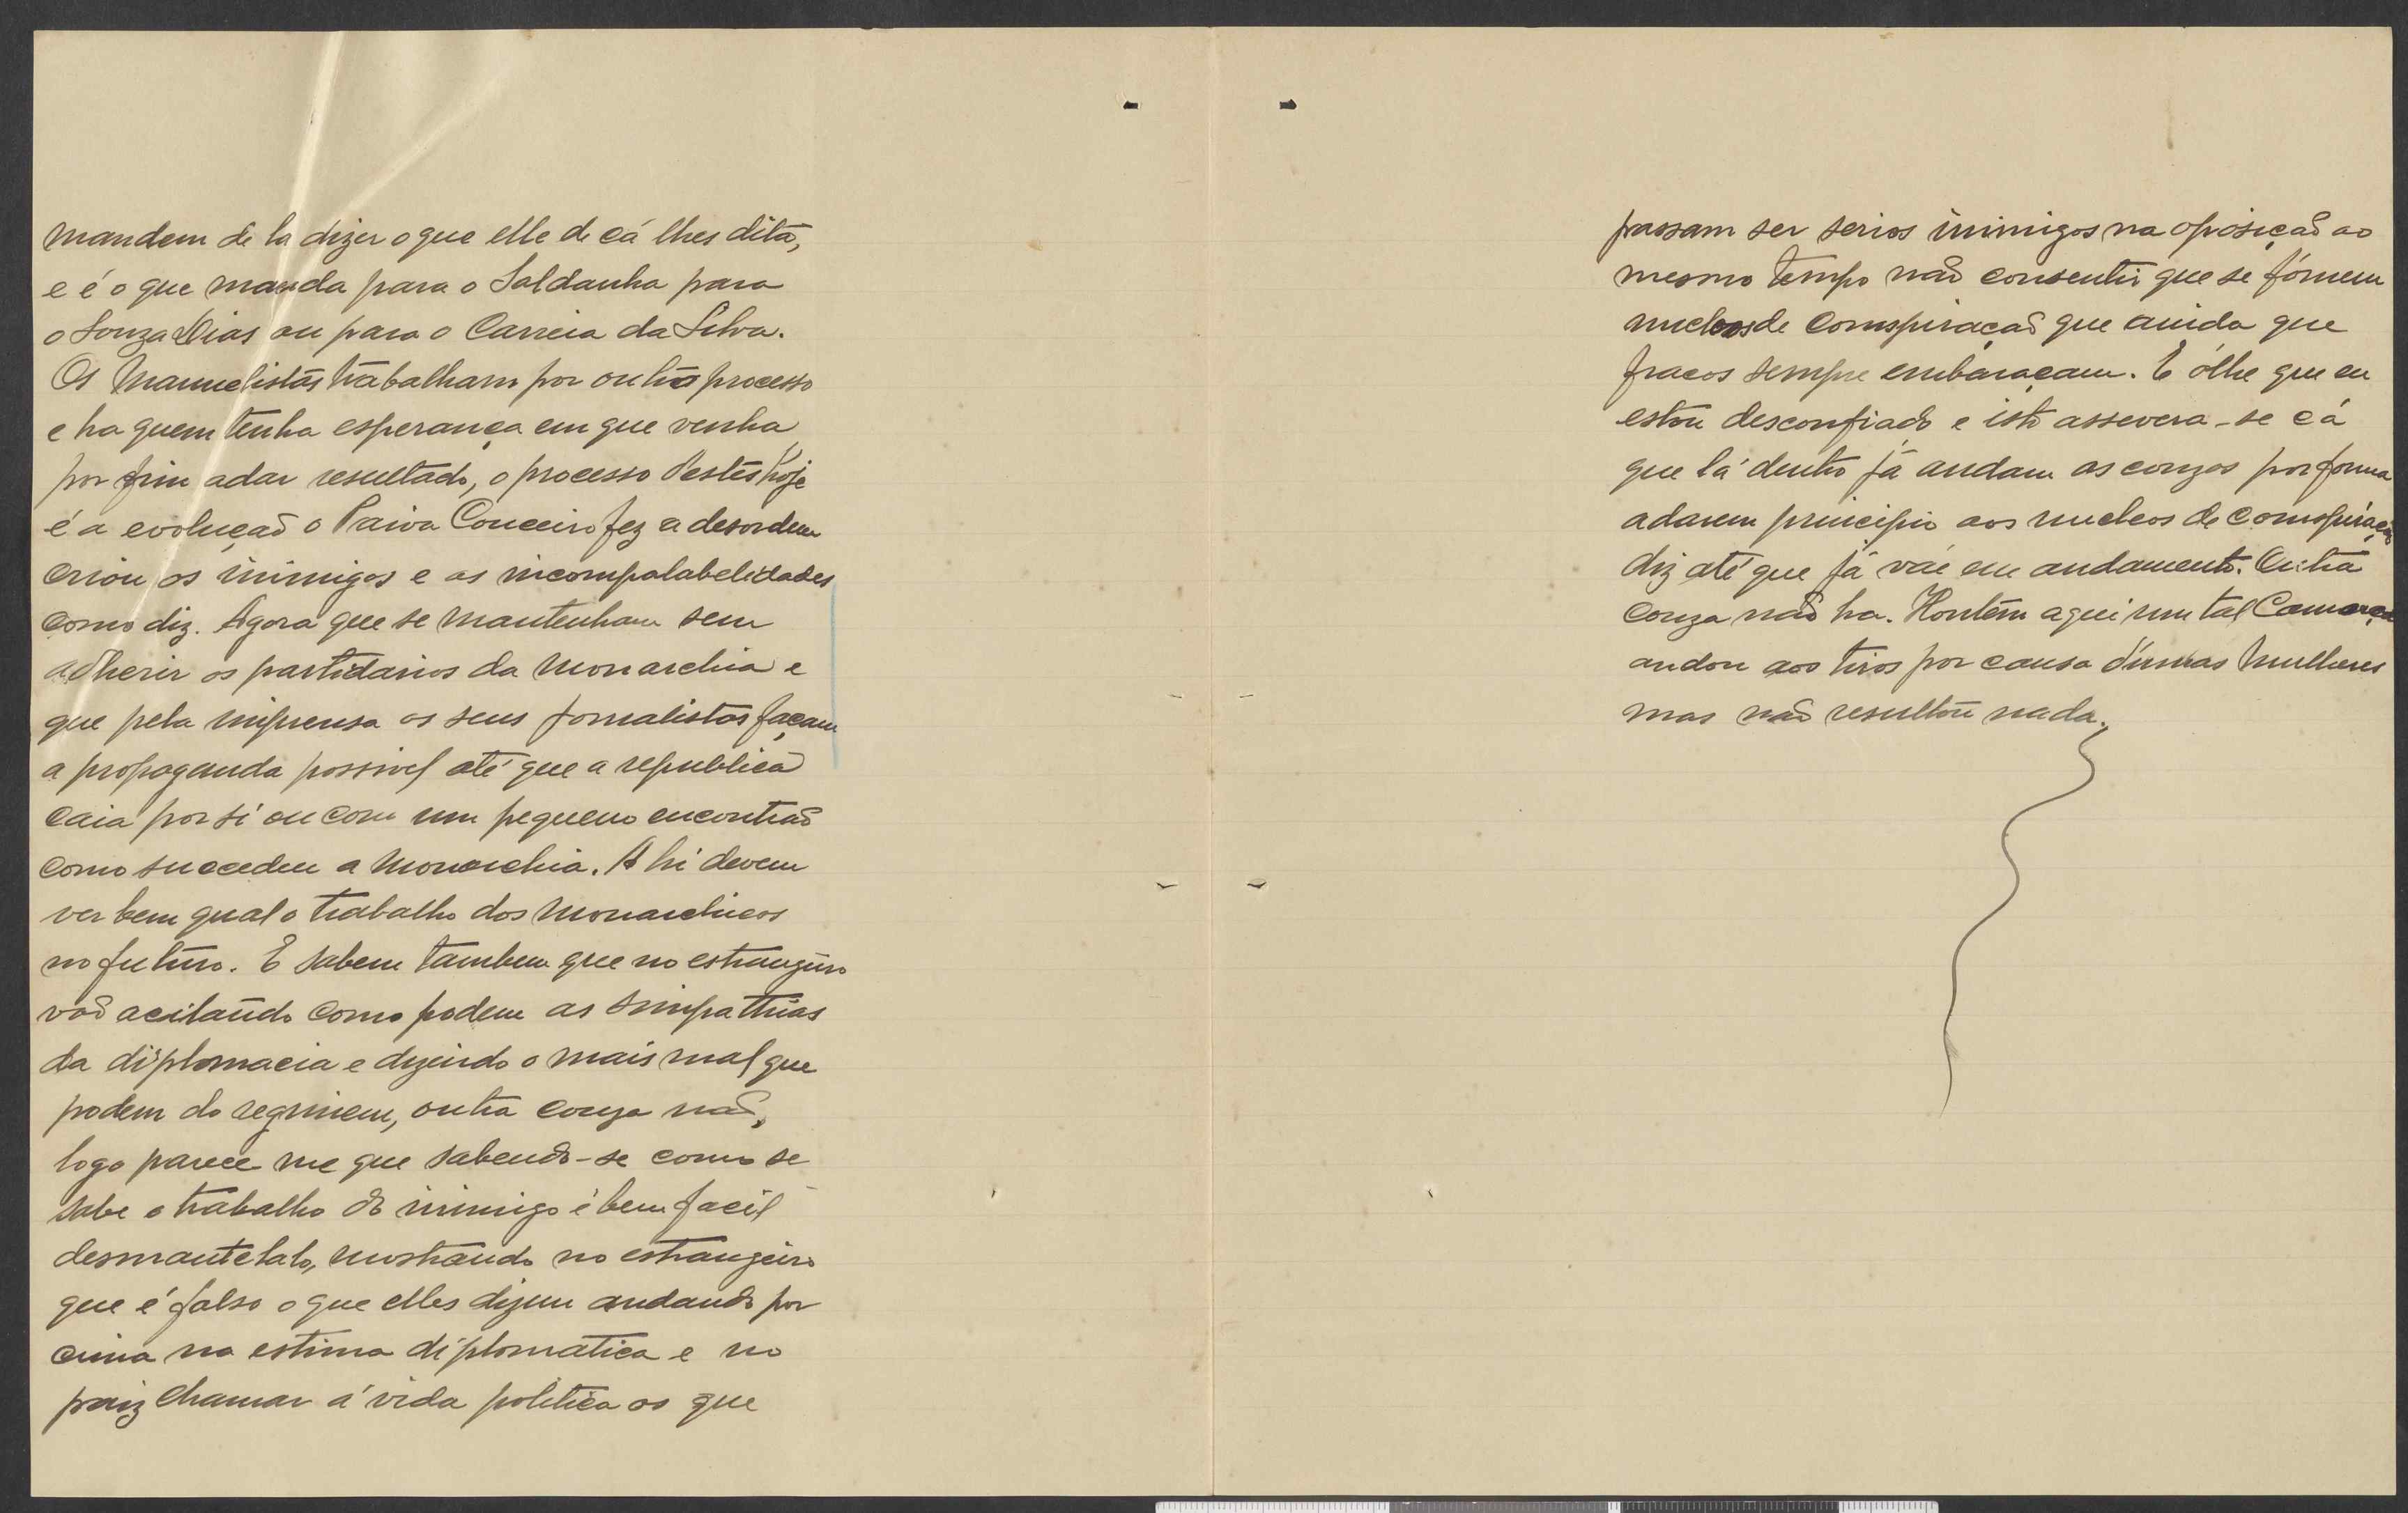 mandem de la dizer o que elle de cá lhes dita,
e é o que manda para o Saldanha para
o Souza Dias ou para o Carreia da Silva.
Os Manuelistas trabalham por outro processo
e ha quem tenha esperança em que venha
por fim adar resultado, o processo destes hoje
é a evolução o Paiva Couceiro fez a desordem
criou os inimigos e as incompalabelidades
como diz. Agora que se mantenham sem
adherir os partidarios da Monarchia e
que pela imprensa os seus jornalistas façam
a propaganda possivel até que a republica
caia por si ou com um pequeno encontrão
como succedeu a Monarchia. Ahi devem
ver bem qual o trabalho dos Monarchicos
no futuro. E sabem tambem que no estrangeiro
vão acilando como podem as simpathias
da diplomacia e dizendo o mais mal que
podem do regimem, outra couza não,
logo parece me que sabendo-se como se
sabe o trabalho do inimigo é bem facil
desmantelalo, mostrando no estrangeiro
que é falso o que elles dizem andando por
cima na estima diplomatica e no
paiz chamar á vida politica os que
possam ser serios inimigos na oposição ao
mesmo tempo não consentir que se fórmem
nucleos de Comspiração que ainda que
fracos sempre embaraçam. E ólhe que eu
estou desconfiado e isto assevera-se cá
que lá dentro já andam as couzas por forma
adarem principio aos nucleos de comspiração
diz até que já vae em andamento. Outra
couza não ha. Hontem aqui um tal Camara
andou aos tiros por causa d'umas Mulheres
mas não resultou nada.